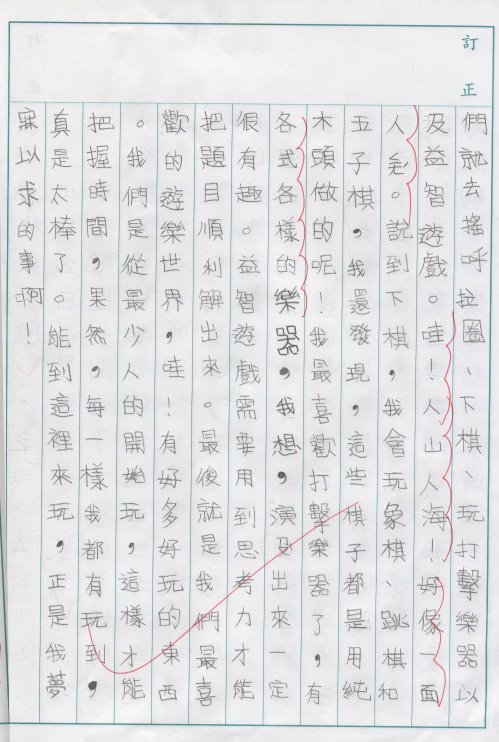 訂正
們就去搖呼拉圈、下棋、玩打擊樂器以
及益智遊戲。哇！人山人海！好像一面
人牆。說到下棋，我會玩象棋、跳棋和
五子棋，我還發現，這些棋子都是用純
木頭做的呢！我最喜歡打擊樂器了，有
各式各樣的樂器，我想，演奏出來一定
很有趣。益智遊戲需要用到思考力才能
把題目順利解出來。最後就是我們最喜
歡的遊樂世界，哇！有好多好玩的東西
。我們是從最少人的開始玩，這樣才能
把握時間，果然，每一樣我都有玩到，
真是太棒了。能到這裡來玩，正是我夢
寐以求的事啊！